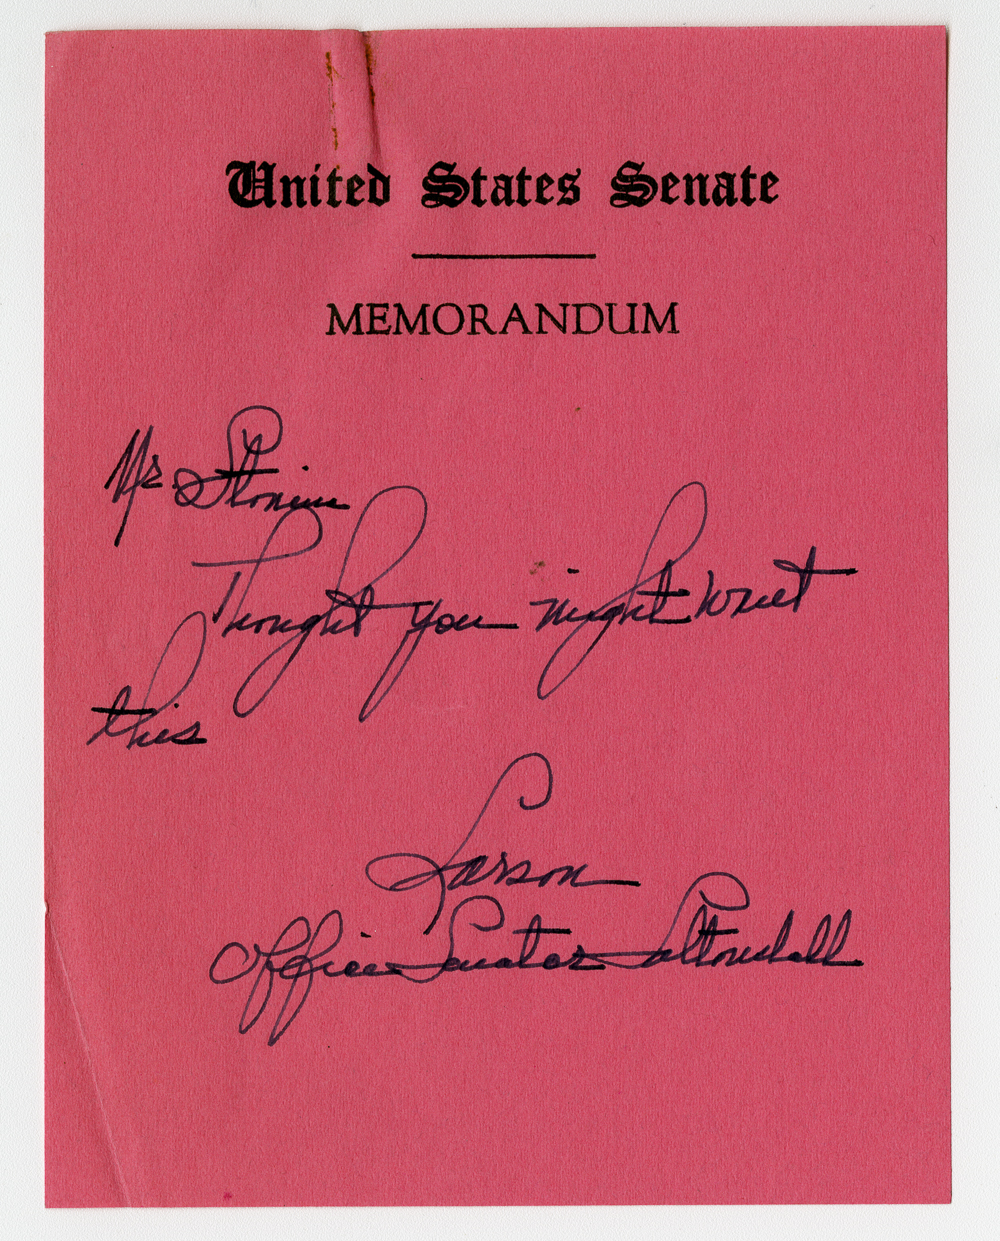 United States Senate
MEMORANDUM
Mr. Stonim
Thought you might want
this
Larson
Office Senator Saltonstall